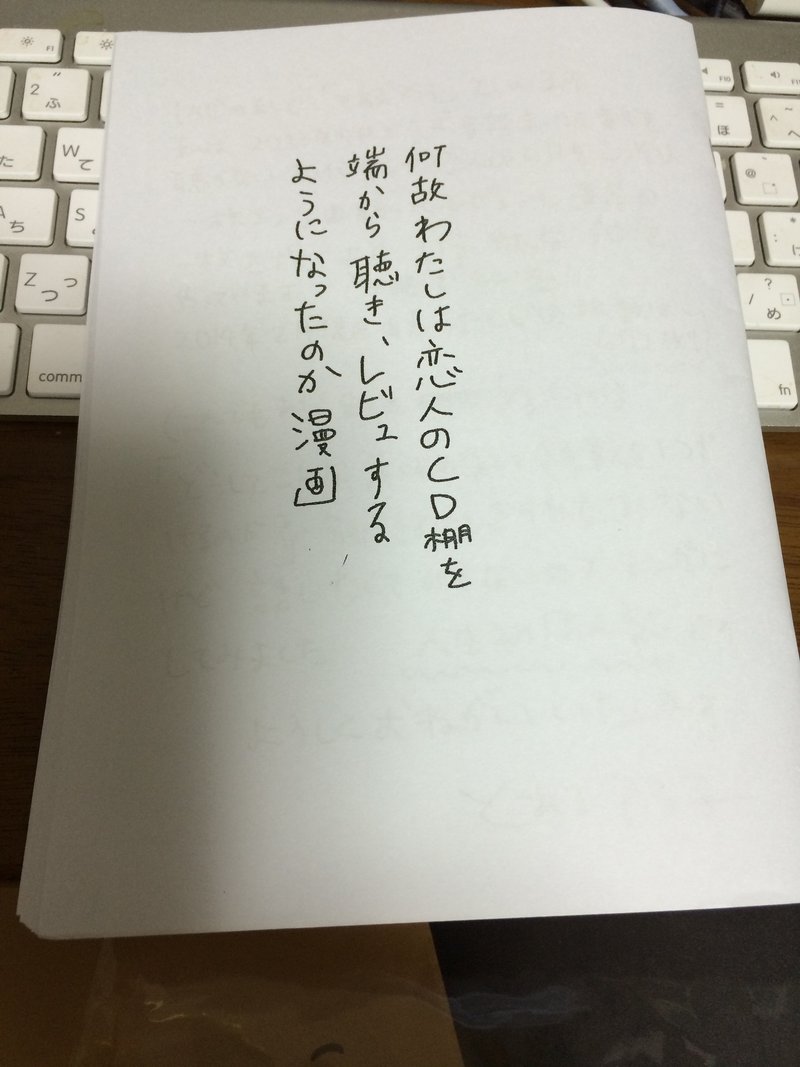 何故わたしは恋人のCD棚を
端から聴き、レビュする
ようになったのか漫画
F1
2 ふ
W て
た
A ち
S
Z つ っ
comm
F10
= ほ
~ へ
@
: け
? / め
fn